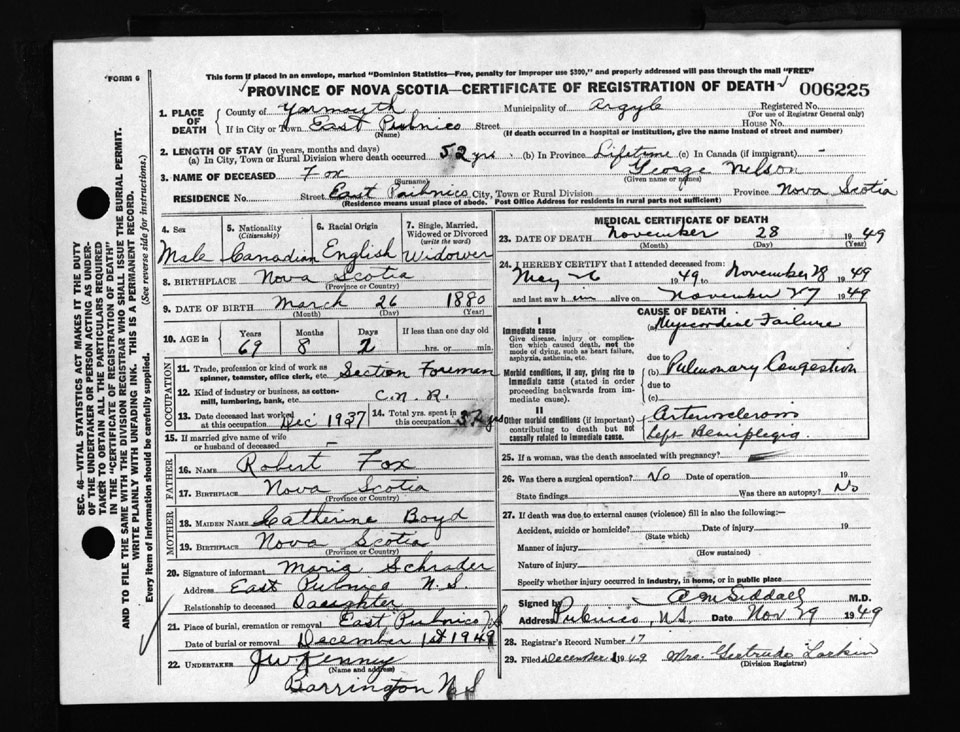 FORM 6
This form if placed in an envelope, marked "Dominion Statistics—Free, penalty for improper use $300," and properly addressed will pass through the mail "FREE"
PROVINCE OF NOVA SCOTIA—CERTIFICATE OF REGISTRATION OF DEATH
006225
1. PLACE OF DEATH
County of Yarmouth Municipality of Argyle Registered No.
(For use of Registrar General only)
If in City or Town East Pubnico Street House No.
(Name) (If death occurred in a hospital or institution, give the name instead of street and number)
2. LENGTH OF STAY (in years, months and days)
(a) In City, Town or Rural Division where death occurred 52 yrs. (b) In Province Lifetime (c) In Canada (if immigrant) -
3. NAME OF DECEASED Fox George Nelson
(Surname) (Given name or names)
RESIDENCE No. Street East Pubnico City, Town or Rural Division Province Nova Scotia
(Residence means usual place of abode. Post Office Address for residents in rural parts not sufficient)
4. Sex
Male
5. Nationality
(Citizenship)
Canadian
6. Racial Origin
English
7. Single, Married, Widowed or Divorced
(write the word)
Widower
8. BIRTHPLACE Nova Scotia
(Province or Country)
9. DATE OF BIRTH March 26 1880
(Month) (Day) (Year)
10. AGE in
Years Months Days If less than one day old
69 8 2 hrs. or min.
OCCUPATION
11. Trade, profession or kind of work as spinner, teamster, office clerk, etc. Section Foreman
12. Kind of industry or business, as cotton-mill, lumbering, bank, etc. C.N.R.
13. Date deceased last worked at this occupation Dec 1937
14. Total yrs. spent in this occupation 37 yrs
15. If married give name of wife or husband of deceased -
FATHER
16. NAME Robert Fox
17. BIRTHPLACE Nova Scotia
(Province or Country)
MOTHER
18. MAIDEN NAME Catherine Boyd
19. BIRTHPLACE Nova Scotia
(Province or Country)
20. Signature of informant Maria Schrader
Address East Pubnico N.S.
Relationship to deceased Daughter
21. Place of burial, cremation or removal East Pubnico N.S.
Date of burial or removal December 1st 1949
22. UNDERTAKER J W Kenney
(Name and address)
Barrington N.S
MEDICAL CERTIFICATE OF DEATH
23. DATE OF DEATH November 28 1949
(Month) (Day) (Year)
24. I HEREBY CERTIFY that I attended deceased from:
May 6 1949 to November 28 1949
and last saw him alive on November 27 1949
CAUSE OF DEATH
I
Immediate cause
Give disease, injury or complication which caused death, not the mode of dying, such as heart failure, asphyxia, asthenia, etc.
(a) Myocardial Failure
due to
Morbid conditions, if any, giving rise to immediate cause (stated in order proceeding backwards from immediate cause).
(b) Pulmonary Congestion
due to
(c)
II
Other morbid conditions (if important) contributing to death but not causally related to immediate cause.
Arteriosclerosis
Left Hemiplegia
25. If a woman, was the death associated with pregnancy?
26. Was there a surgical operation? No Date of operation 19
State findings Was there an autopsy? No
27. If death was due to external causes (violence) fill in also the following:—
Accident, suicide or homicide? Date of injury 19
(State which)
Manner of injury
(How sustained)
Nature of injury
Specify whether injury occurred in industry, in home, or in public place
Signed by A M Siddall M.D.
Address Pubnico, N.S. Date Nov 29 1949
28. Registrar's Record Number 17
29. Filed December 1 1949 Mrs. Gertrude Larkin
(Division Registrar)
SEC. 46—VITAL STATISTICS ACT MAKES IT THE DUTY
OF THE UNDERTAKER OR PERSON ACTING AS UNDER-
TAKER TO OBTAIN ALL THE PARTICULARS REQUIRED
IN THE "CERTIFICATE OF REGISTRATION OF DEATH"
AND TO FILE THE SAME WITH THE DIVISION REGISTRAR WHO SHALL ISSUE THE BURIAL PERMIT.
WRITE PLAINLY WITH UNFADING INK. THIS IS A PERMANENT RECORD.
Every item of information should be carefully supplied. (See reverse side for instructions.)